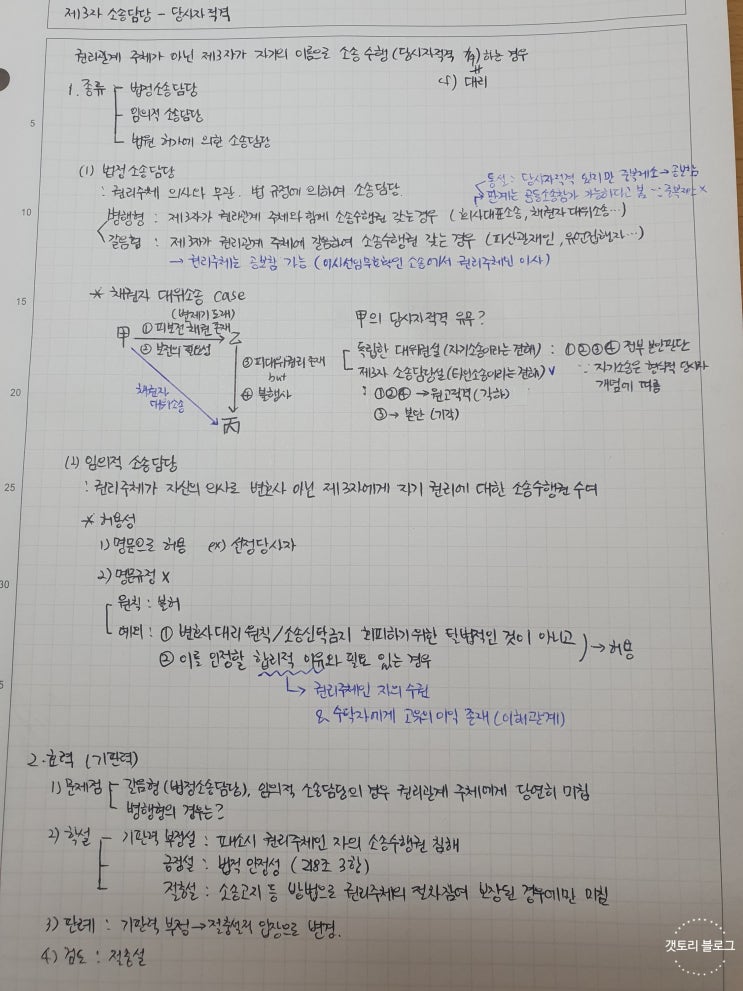 제3자 소송담당 - 당사자적격
권리관계 주체가 아닌 제3자가 자기의 이름으로 소송수행(당사자적격 有)하는 경우
cf) 대리
1. 종류
법정소송담당
임의적 소송담당
법원 허가에 의한 소송담당
(1) 법정소송담당
: 권리주체 의사와 무관. 법 규정에 의하여 소송담당.
통설 : 당사자적격 있지만 중복제소 → 공보참
판례는 공동소송참가 가능하다고 봄 ∵ 중복제소 x
병행형 : 제3자가 권리관계 주체와 함께 소송수행권 갖는 경우 (회사대표소송, 채권자대위소송…)
갈음형 : 제3자가 권리관계 주체에 갈음하여 소송수행권 갖는 경우 (파산관재인, 유언집행자…)
→ 권리주체는 공보참 가능 (이사선임무효확인 소송에서 권리주체인 이사)
* 채권자 대위소송 case
(변제기 도래)
甲 ① 피보전채권 존재 乙
② 보전의 필요성
③ 피대위권리 존재
but
④ 불행사
채권자
대위소송
丙
甲의 당사자적격 유무?
독립한 대위권설 (자기소송이라는 견해) : ①②③④ 전부 본안판단
∵ 자기소송은 형식적 당사자
개념에 따름
제3자 소송담당설 (타인소송이라는 견해) v
: ①②④ → 원고적격 (각하)
③ → 본안 (기각)
(2) 임의적 소송담당
: 권리주체가 자신의 의사로 변호사 아닌 제3자에게 자기 권리에 대한 소송수행권 수여
* 허용성
1) 명문으로 허용 ex) 선정당사자
2) 명문규정 x
원칙 : 불허
예외 : ① 변호사대리 원칙/소송신탁금지 회피하기 위한 탈법적인 것이 아니고
② 이를 인정할 합리적 이유와 필요 있는 경우
→ 허용
권리주체인 자의 수권
& 수탁자에게 고유의 이익 존재 (이해관계)
2. 효력 (기판력)
1) 문제점
갈음형 (법정소송담당), 임의적 소송담당의 경우 권리관계 주체에게 당연히 미침
병행형의 경우는?
2) 학설
기판력 부정설 : 패소시 권리주체인 자의 소송수행권 침해
긍정설 : 법적 안정성 (218조 3항)
절충설 : 소송고지 등 방법으로 권리주체의 절차참여 보장된 경우에만 미침
3) 판례 : 기판력 부정 → 절충설적 입장으로 변경.
4) 검토 : 절충설
5
10
15
20
25
30
5
갯토리 블로그